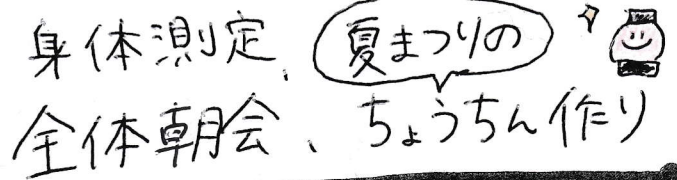 身体測定、夏まつりの
全体朝会、ちょうちん作り